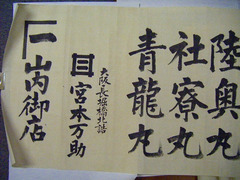 陸奥丸
社寮丸
青龍丸
大阪長堀橋北詰
宮本万助
山内御店